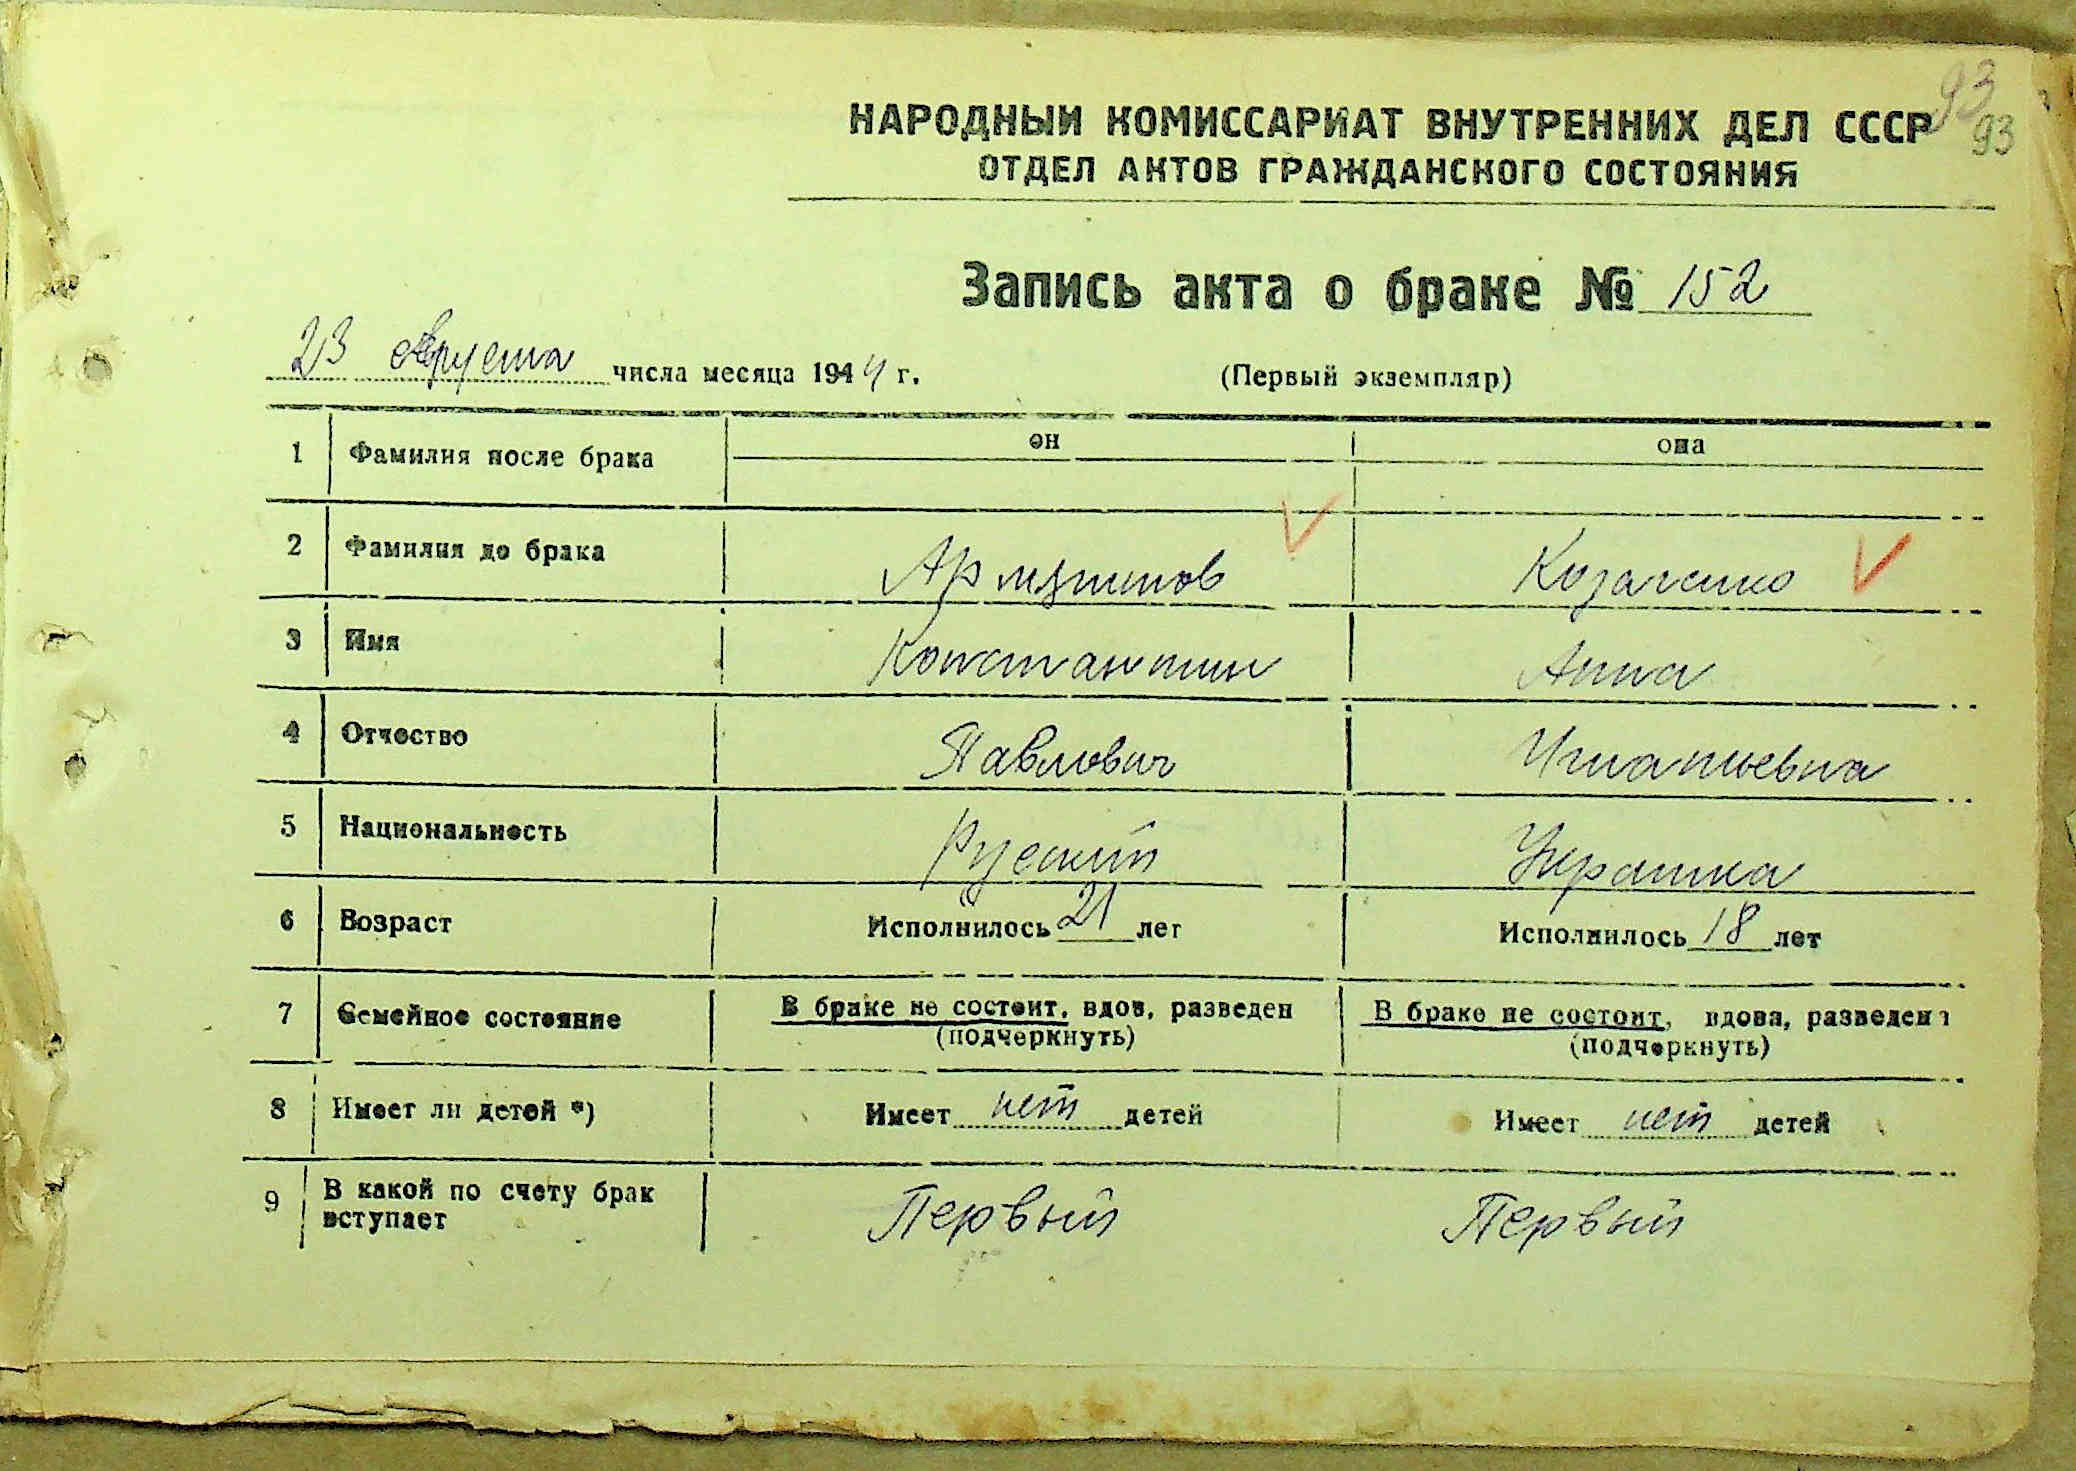 93
93
НАРОДНЫЙ КОМИССАРИАТ ВНУТРЕННИХ ДЕЛ СССР
ОТДЕЛ АКТОВ ГРАЖДАНСКОГО СОСТОЯНИЯ
Запись акта о браке № 152
23 Августа числа месяца 1944 г. (Первый экземпляр)
1 Фамилия после брака он она
2 Фамилия до брака Козаченко
3 Имя Константин Анна
4 Отчество Павлович Игнатьевна
5 Национальность Руский Украинка
6 Возраст Исполнилось 21 лет Исполнилось 18 лет
7 Семейное состояние В браке не состоит, вдов, разведен В браке не состоит, вдова, разведена
(подчеркнуть) (подчеркнуть)
8 Имеет ли детей *) Имеет нет детей Имеет нет детей
9 В какой по счету брак вступает Первый Первый